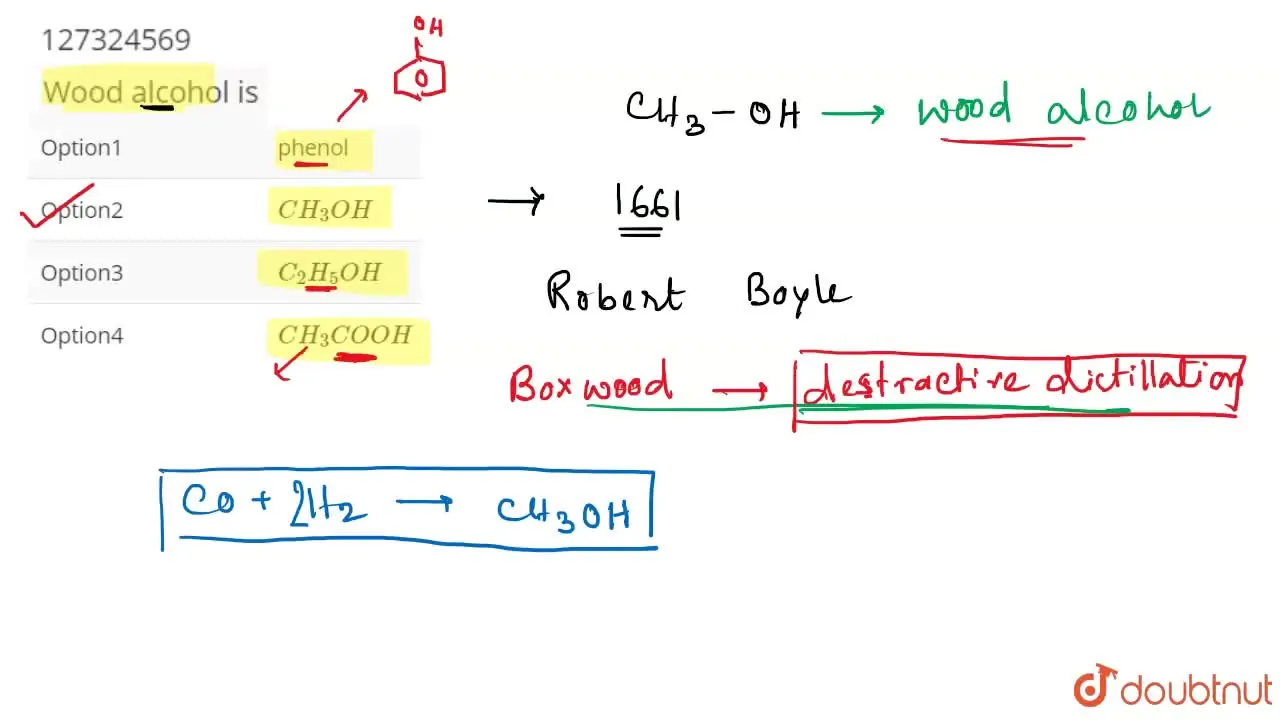 127324569
Wood alcohol is
Option1 phenol
Option2 CH₃OH
Option3 C₂H₅OH
Option4 CH₃COOH
OH
CH₃-OH → wood alcohol
→ 1661
Robert Boyle
Boxwood → destractive dictillation
CO + 2H₂ → CH₃OH
doubtnut